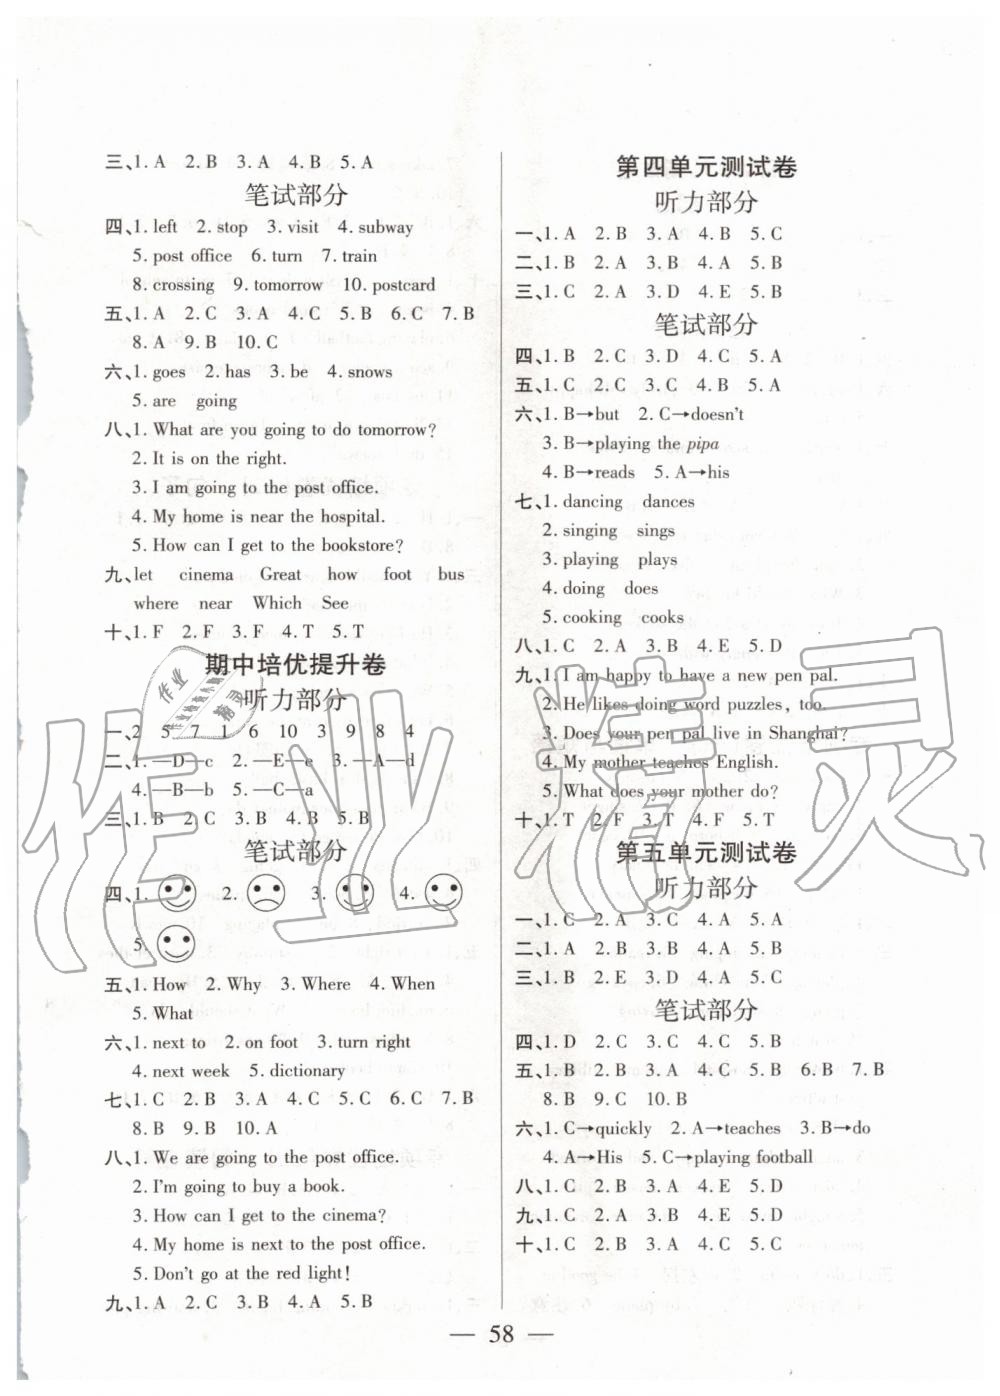 三、1. A 2. B 3. A 4. B 5. A
笔试部分
四、1. left 2. stop 3. visit 4. subway
5. post office 6. turn 7. train
8. crossing 9. tomorrow 10. postcard
五、1. A 2. C 3. A 4. C 5. B 6. C 7. B
8. A 9. B 10. C
六、1. goes 2. has 3. be 4. snows
5. are going
八、1. What are you going to do tomorrow?
2. It is on the right.
3. I am going to the post office.
4. My home is near the hospital.
5. How can I get to the bookstore?
九、let cinema Great how foot bus
where near Which See
十、1. F 2. F 3. F 4. T 5. T
期中培优提升卷
听力部分
一、2 5 7 1 6 10 3 9 8 4
二、1. —D—c 2. —E—e 3. —A—d
4. —B—b 5. —C—a
三、1. B 2. C 3. B 4. B 5. B
笔试部分
四、1. 2. 3. 4.
5.
五、1. How 2. Why 3. Where 4. When
5. What
六、1. next to 2. on foot 3. turn right
4. next week 5. dictionary
七、1. C 2. B 3. A 4. C 5. C 6. C 7. B
8. B 9. B 10. A
八、1. We are going to the post office.
2. I'm going to buy a book.
3. How can I get to the cinema?
4. My home is next to the post office.
5. Don't go at the red light!
九、1. A 2. C 3. B 4. A 5. B
第四单元测试卷
听力部分
一、1. A 2. B 3. A 4. B 5. C
二、1. B 2. A 3. B 4. A 5. B
三、1. C 2. A 3. D 4. E 5. B
笔试部分
四、1. B 2. C 3. D 4. C 5. A
五、1. C 2. C 3. C 4. B 5. A
六、1. B→but 2. C→doesn't
3. B→playing the pipa
4. B→reads 5. A→his
七、1. dancing dances
2. singing sings
3. playing plays
4. doing does
5. cooking cooks
八、1. C 2. A 3. B 4. E 5. D
九、1. I am happy to have a new pen pal.
2. He likes doing word puzzles, too.
3. Does your pen pal live in Shanghai?
4. My mother teaches English.
5. What does your mother do?
十、1. T 2. F 3. T 4. F 5. T
第五单元测试卷
听力部分
一、1. C 2. A 3. C 4. A 5. A
二、1. A 2. B 3. A 4. A 5. B
三、1. B 2. E 3. D 4. A 5. C
笔试部分
四、1. D 2. C 3. C 4. C 5. B
五、1. B 2. B 3. A 4. C 5. B 6. B 7. B
8. B 9. C 10. B
六、1. C→quickly 2. A→teaches 3. B→do
4. A→His 5. C→playing football
八、1. C 2. B 3. A 4. E 5. D
九、1. C 2. A 3. B 4. E 5. D
十、1. C 2. B 3. A 4. C 5. C
— 58 —
作业精灵